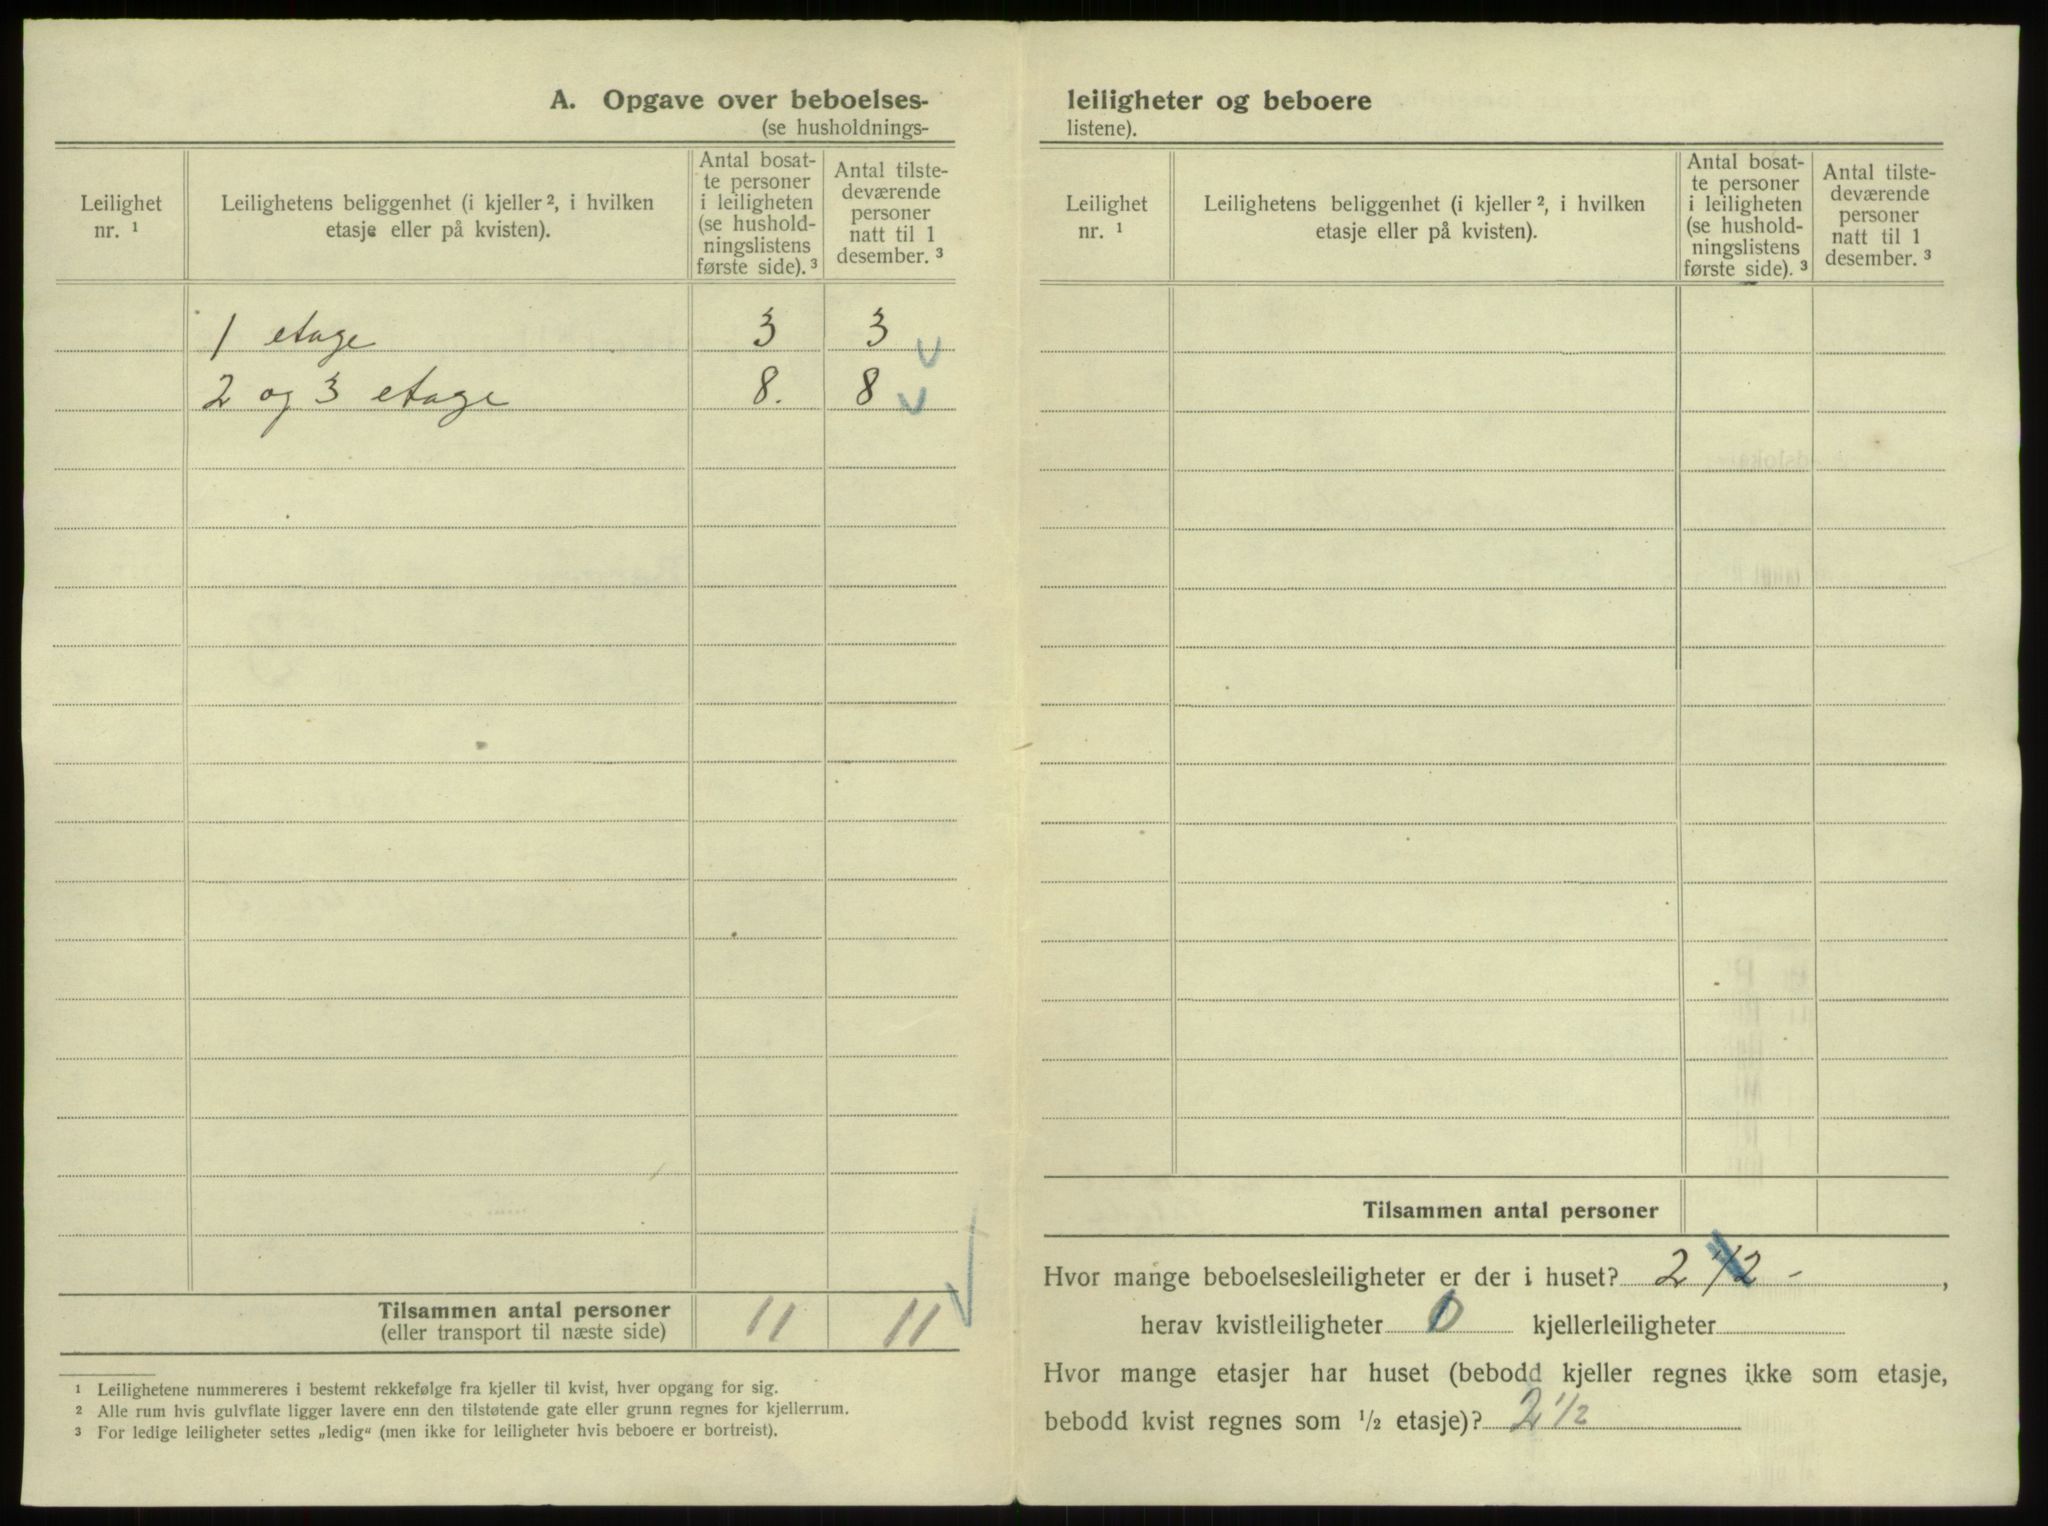 A. Opgave over beboelses-
(se husholdnings-
Leilighet nr. ¹
Leilighetens beliggenhet (i kjeller ², i hvilken
etasje eller på kvisten).
Antal bosat-
te personer
i leiligheten
(se hushold-
ningslistens
første side). ³
Antal tilste-
deværende
personer
natt til 1
desember. ³
1 etage 3 3
2 og 3 etage 8. 8
Tilsammen antal personer 11 11
(eller transport til næste side)
¹ Leilighetene nummereres i bestemt rekkefølge fra kjeller til kvist, hver opgang for sig.
² Alle rum hvis gulvflate ligger lavere enn den tilstøtende gate eller grunn regnes for kjellerrum.
³ For ledige leiligheter settes „ledig“ (men ikke for leiligheter hvis beboere er bortreist).
leiligheter og beboere
listene).
Leilighet nr. ¹
Leilighetens beliggenhet (i kjeller ², i hvilken
etasje eller på kvisten).
Antal bosat-
te personer
i leiligheten
(se hushold-
ningslistens
første side). ³
Antal tilste-
deværende
personer
natt til 1
desember. ³
Tilsammen antal personer
Hvor mange beboelsesleiligheter er der i huset? 2 1/2 - ,
herav kvistleiligheter 0 kjellerleiligheter
Hvor mange etasjer har huset (bebodd kjeller regnes ikke som etasje,
bebodd kvist regnes som ½ etasje)? 2 1/2